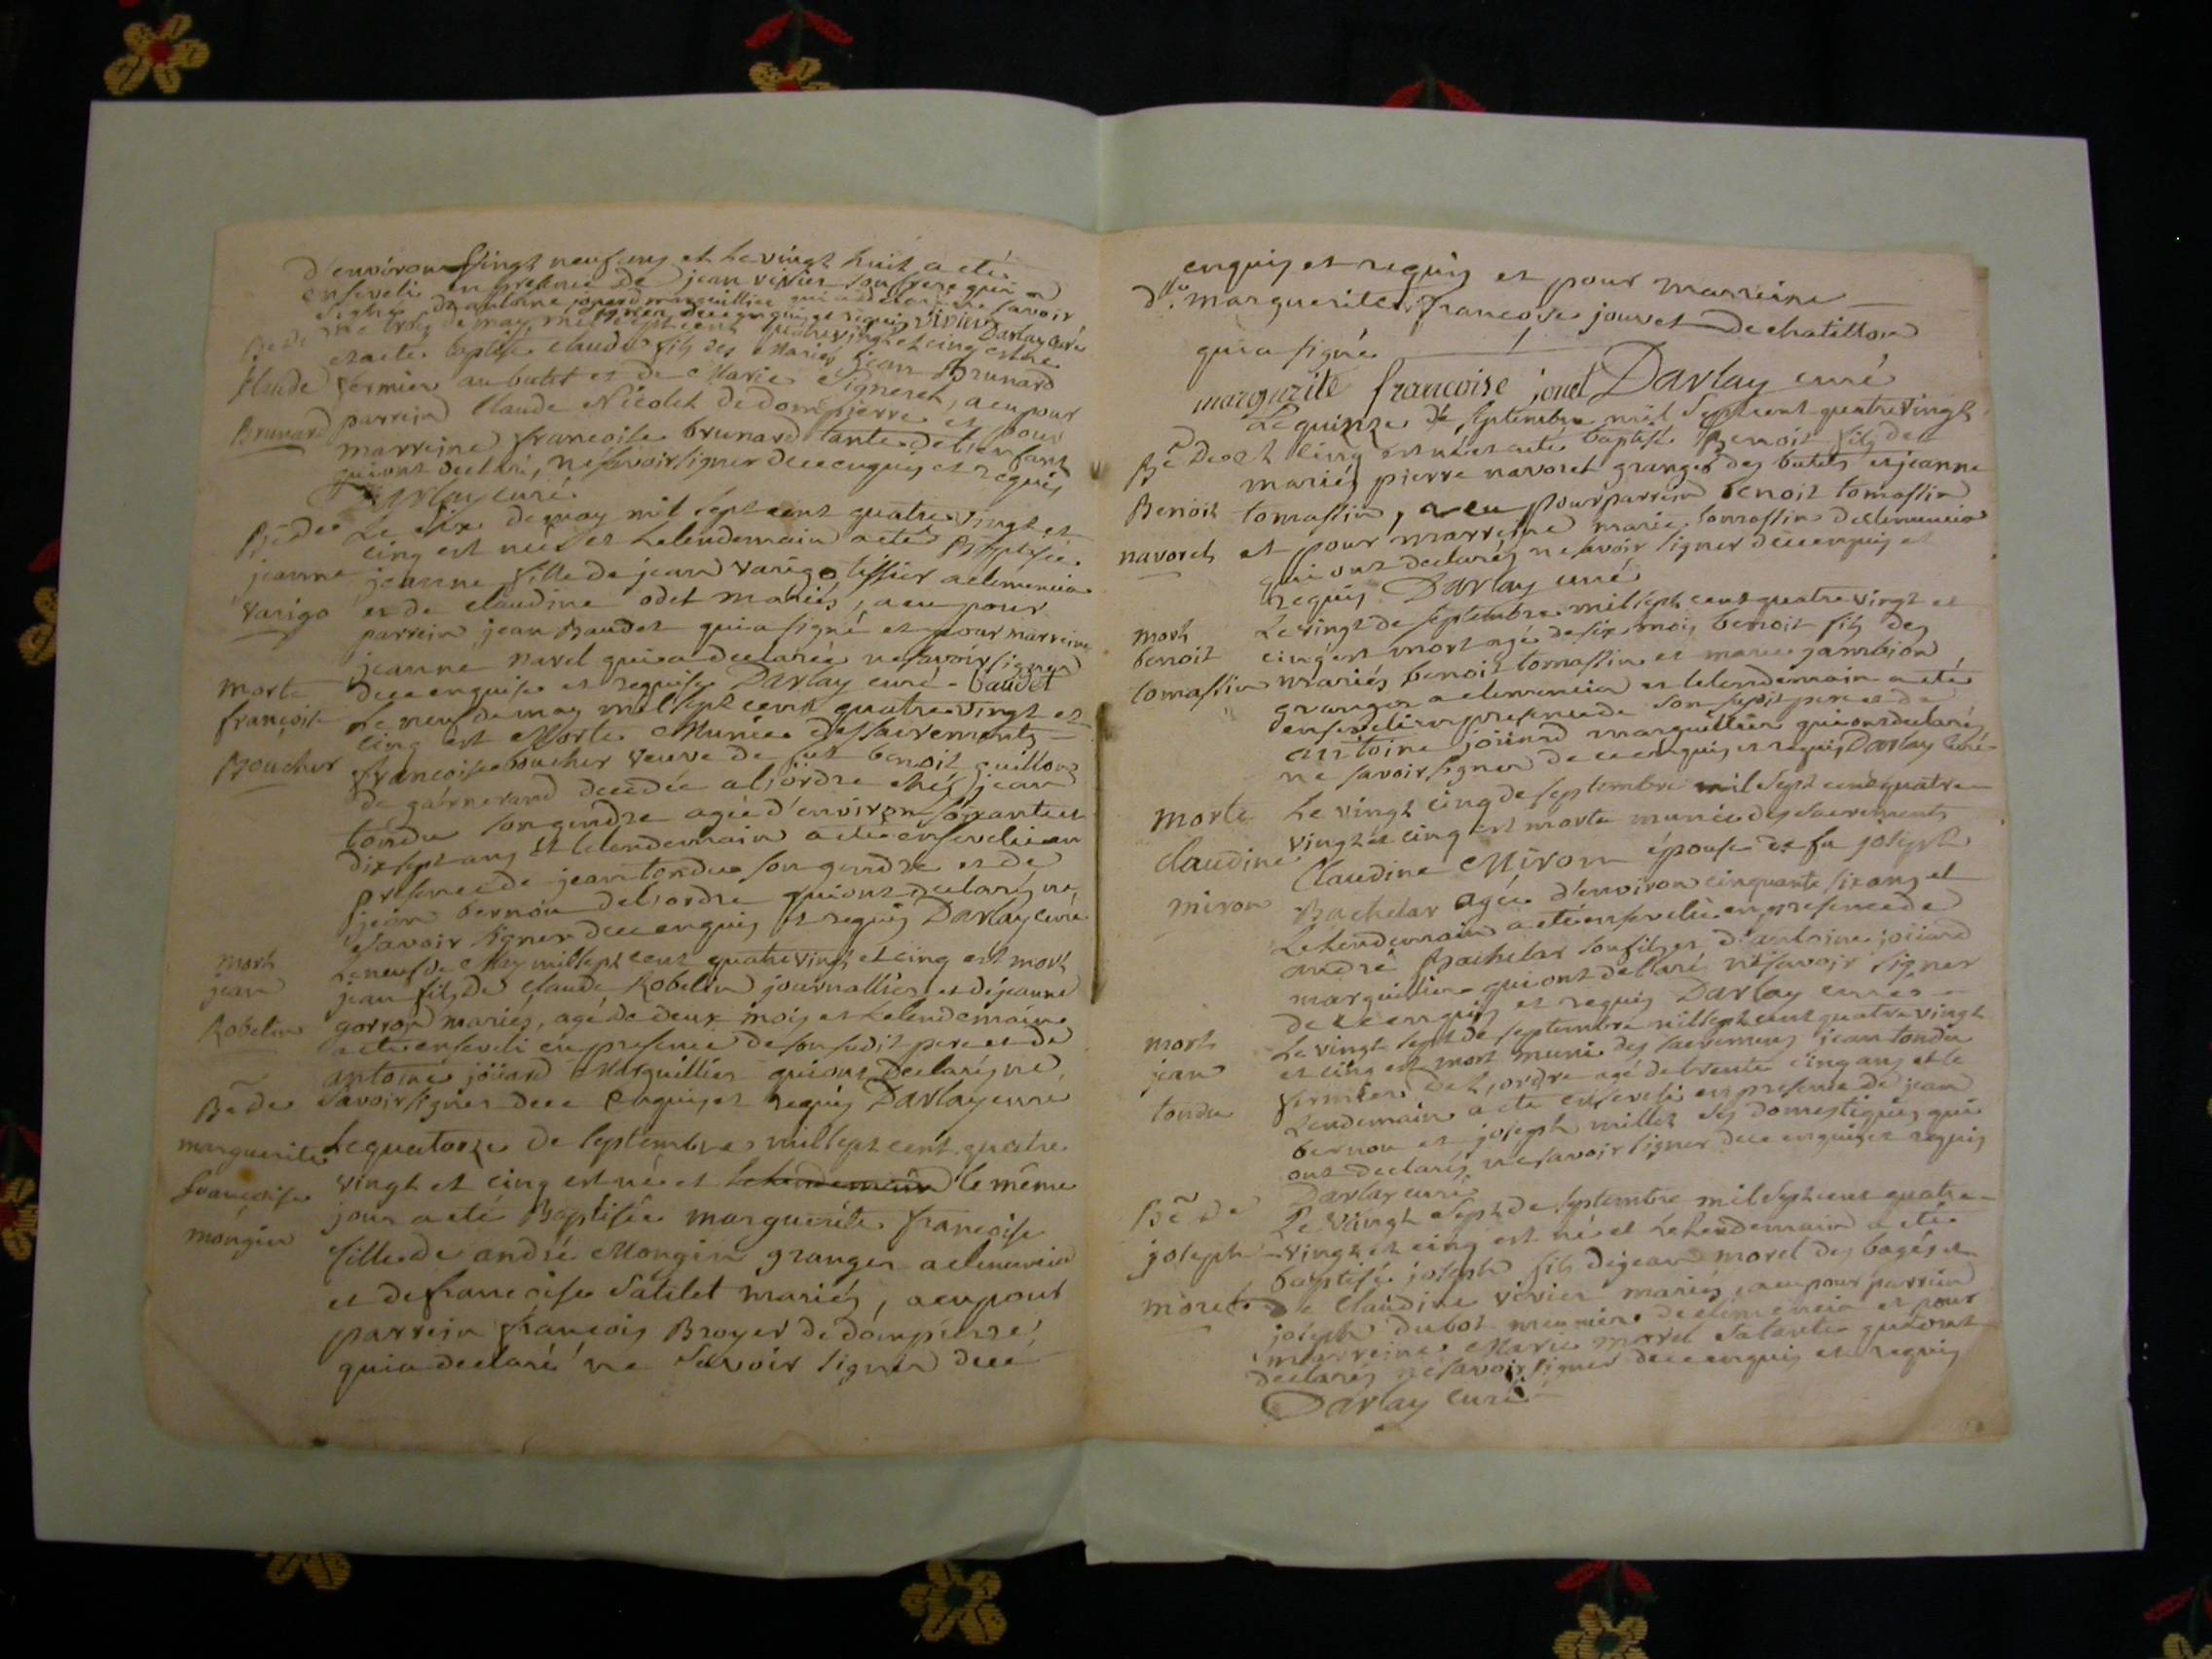 d'environ vingt neuf ans et le vingt huit a eté
enseveli en presence de jean vivier son frere qui a
signé et d'antoine joüard marguillier qui a declaré ne savoir
signer de ce enquis et requis vivier Darlay curé
Bê de Le trois de may mil sept cent quatre vingt et cinq est né
et a eté baptisé claude fils des mariés jean Brunard
Claude fermier au butet et de Marie Signeret, a eu pour
Brunard parrein Claude Nicolet de dompierre et pour
marreine francoise brunard tante de l'enfant
qui ont declaré, ne savoir signer de ce enquis et requis
Darlay curé
Bê de Le six de may mil sept cent quatre vingt et
cinq est née et Lelendemain a eté Baptisée
jeanne jeanne fille de jean varigo tissier a clemencia
varigo et de claudine odet mariés, a eu pour
parrein jean Baudet qui a signé et pour marreine
jeanne navel qui a declarée ne savoir signer
morte de ce enquise et requise Darlay curé - baudet
françoise Le neuf de may mil sept cent quatre vingt et
cinq est Morte Munie des sacrements
Boucher francoise boucher veuve de fut benoit guillon
de garnerand decedée a l'ordre chés jean
tondu son gendre agée d'environ soixante et
dix sept ans et lelendemain a eté ensevelie en
presence de jean tondu son gendre et de
jean bernou de l'ordre qui ont declarés ne
savoir signer de ce enquis et requis Darlay curé
mort Le neuf de May mil sept cent quatre vingt et cinq est mort
jean jean fils de Claude Robelin journallier et de jeanne
Robelin gorrod mariés, agé de deux mois et Lelendemain
a eté enseveli en presence de son sudit pere et de
antoine joüard Marguillier qui ont declarés ne
Bê de savoir signer de ce Enquis et requis Darlay curé
marguerite Le quatorze de septembre mil sept cent quatre
francoise vingt et cinq est né et lelendemain le même
jour a eté Baptisée marguerite francoise
mongin fille de andré Mongin granger a clemencia
et de francoise Salilet mariés, a eu pour
parrein françois Broyer de dompierre,
qui a declaré ne Savoir signer de ce
enquis et requis et pour marreine
dlle marguerite francoise jouvet de chatillon
qui a signé
marguerite francoise jouet Darlay curé
Le quinze de septembre mil Sept cent quatre vingt
Bê de et cinq est né et a eté baptisé Benoit fils des
mariés pierre navoret granger des butets et jeanne
Benoit tomassin, a eu pour parrein benoit tomassin
navoret et pour marreine marie tomassin de clemencia
qui ont declarés ne savoir signer de ce enquis et
requis Darlay curé
mort Le vingt de septembre mil sept cent quatre vingt et
benoit cinq est mort agé de six mois benoit fils des
tomassin mariés benoit tomassin et marie jambion
granger a clemencia et lelendemain a eté
enseveli en presence de son sudit pere et de
antoine joüard marguillier qui ont declarés
ne savoir signer de ce enquis et requis Darlay Curé
morte Le vingt cinq de septembre mil sept cent quatre
vingt et cinq est morte munie des sacrements
claudine Claudine Miron épouse de fu joseph
miron Bachelar agée d'environ cinquante six ans et
Lelendemain a eté ensevelie en presence de
andré Bachelar son fils et d'antoine joüard
marguillier qui ont declaré ne savoir signer
de ce enquis et requis Darlay curé
mort Le vingt sept de septembre mil sept cent quatre vingt
jean et cinq est mort muni des sacremens jean tondu
tondu fermier de l'ordre agé de trente cinq ans et le
Lendemain a eté enseveli en presence de jean
bernou et joseph millet ses domestiques qui
ont declarés ne savoir signer de ce enquis et requis
Darlay curé
Bê de Le vingt sept de septembre mil sept cent quatre
joseph vingt et cinq est né et Lelendemain a eté
baptisé joseph fils de jean morel des bagés et
morel de Claudine vivier mariés, a eu pour parrein
joseph dubot meunier de clemencia et pour
marreine Marie morel sa tante qui ont
declarés ne savoir signer de ce enquis et requis
Darlay Curé